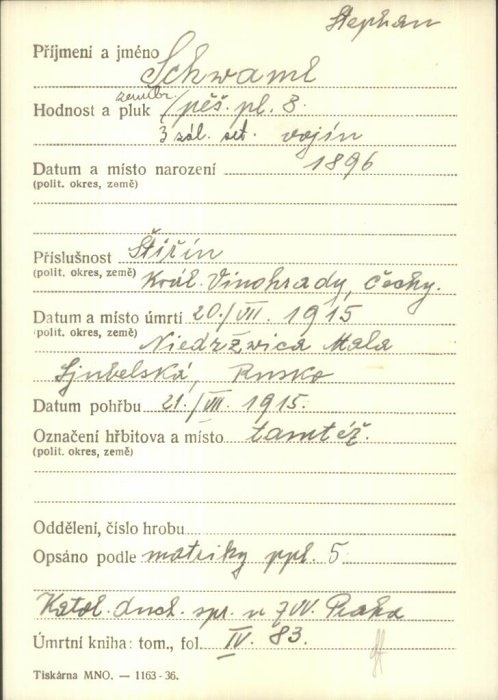 Stephan
Příjmení a jméno Schwaml
zembr.
Hodnost a pluk / pěš. pl. 8.
3 zál. set. vojín
Datum a místo narození 1896
(polit. okres, země)
Příslušnost Štiřín
(polit. okres, země) Král. Vinohrady, Čechy.
Datum a místo úmrtí 20./VII. 1915
(polit. okres, země) Niedržwica Mala
Ljubelská, Rusko
Datum pohřbu 21./VII. 1915.
Označení hřbitova a místo tamtéž.
(polit. okres, země)
Oddělení, číslo hrobu
Opsáno podle matriky ppl. 5
Katol. duch. spr. u ZVV. Praha
Úmrtní kniha: tom., fol. IV. 83.
Tiskárna MNO. — 1163-36.